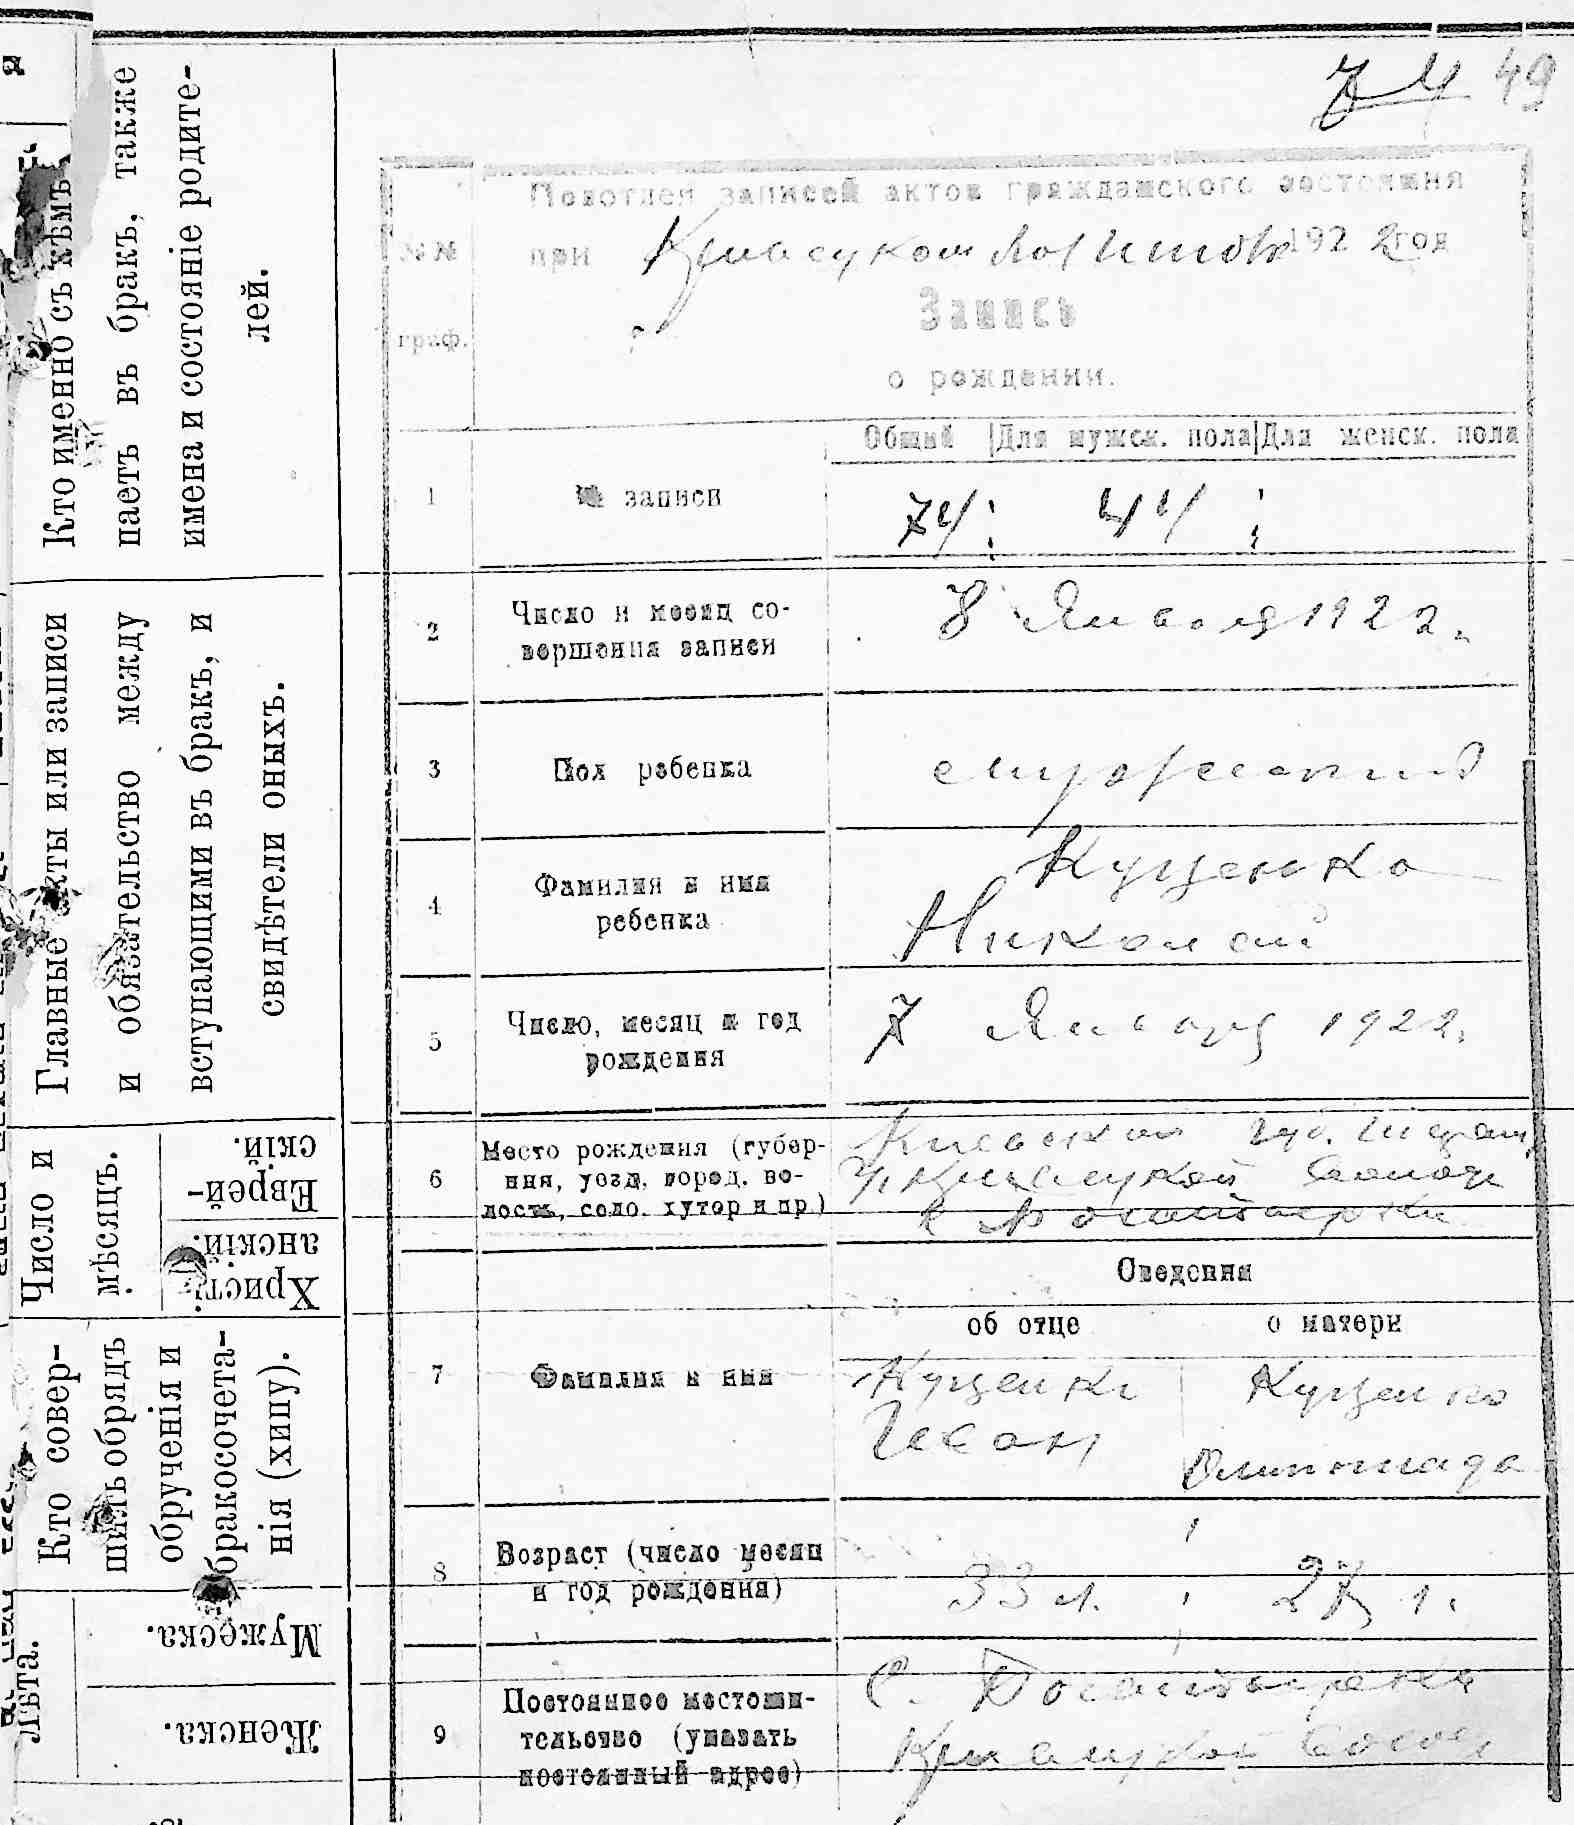 74 49
Кто именно съ кѣмъ
паетъ въ бракъ, также
имена и состояніе родите-
лей.
Главные акты или записи
и обязательство между
вступающими въ бракъ, и
свидѣтели оныхъ.
Число и
мѣсяцъ.
Еврей-
скій.
Христі
анскій.
Кто совер-
шилъ обрядъ
обрученія и
бракосочета-
нія (хипу).
Лѣта.
Мужеска.
Женска.
Подотдел записей актов гражданского состояния
при 1922 год
№№
граф.
Запись
о рождении.
Общий Для мужск. пола Для женск. пола
1 № записи 74 44
2 Число и месяц со-
вершения записи
8 Января 1922.
3 Пол ребенка мужской
4 Фамилия и имя
ребенка
Куценко
Николай
5 Число, месяц и год
рождения
7 Января 1922.
6 Место рождения (губер-
ния, уезд, город, во-
лость, село, хутор и пр)
Киевской губ.
Сведения
об отце о матери
7 Фамилия и имя
Куценко Куценко
Иван
8 Возраст (число месяц
и год рождения)
33 л. 27 л.
9 Постоянное местожи-
тельство (указать
постоянный адрес)
С.